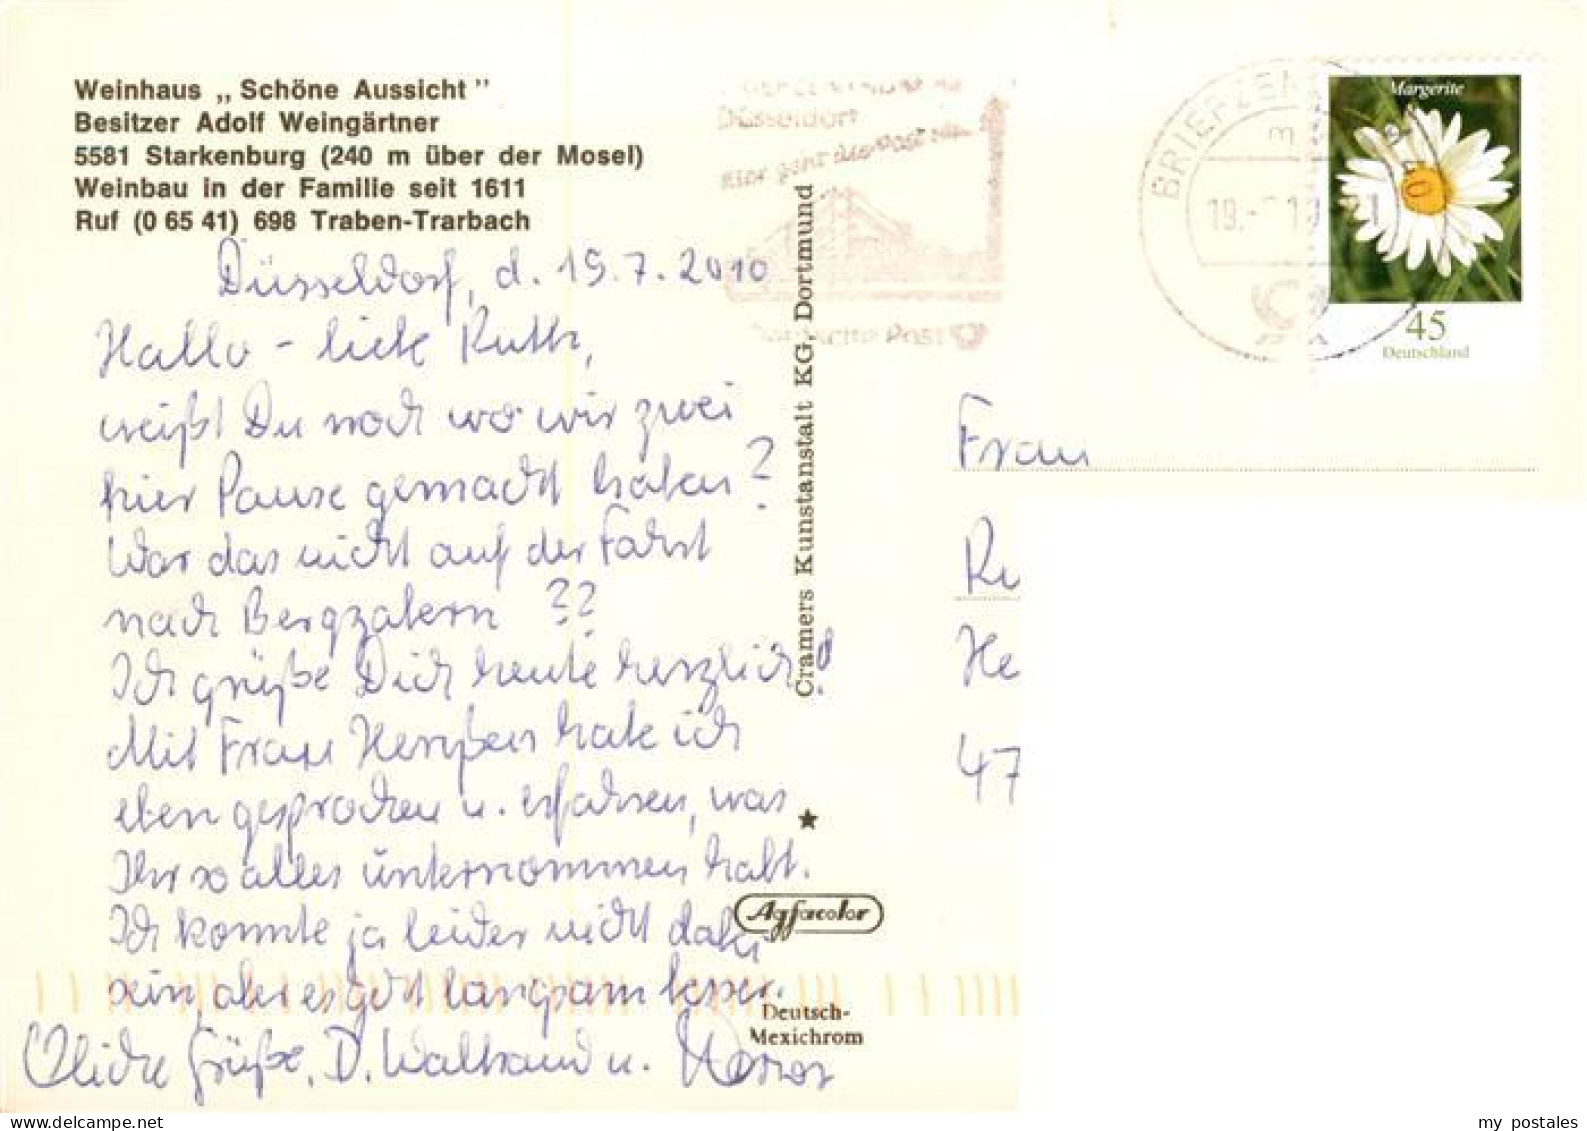 Weinhaus „ Schöne Aussicht ”
Besitzer Adolf Weingärtner
5581 Starkenburg (240 m über der Mosel)
Weinbau in der Familie seit 1611
Ruf (0 65 41) 698 Traben-Trarbach
Düsseldorf, d. 19.7.2010
Hallo - liebe Ruth,
weißt Du noch wo wir zwei
hier Pause gemacht haben?
War das nicht auf der Fahrt
nach Bergzabern ??
Ich grüße Dich heute herzlich!
Mit Frau habe ich
eben gesprochen u. erfahren, was
Ihr so alles unternommen habt.
Ich konnte ja leider nicht dabei
sein, aber es geht langsam besser.
Liebe Grüße, D. u.
Cramers Kunstanstalt KG, Dortmund
Agfacolor
Deutsch-
Mexichrom
Düsseldorf
Hier geht die Post ab
Deutsche Post
BRIEFZEN
Margerite
45
Deutschland
Frau
Ru
He
47
my postales